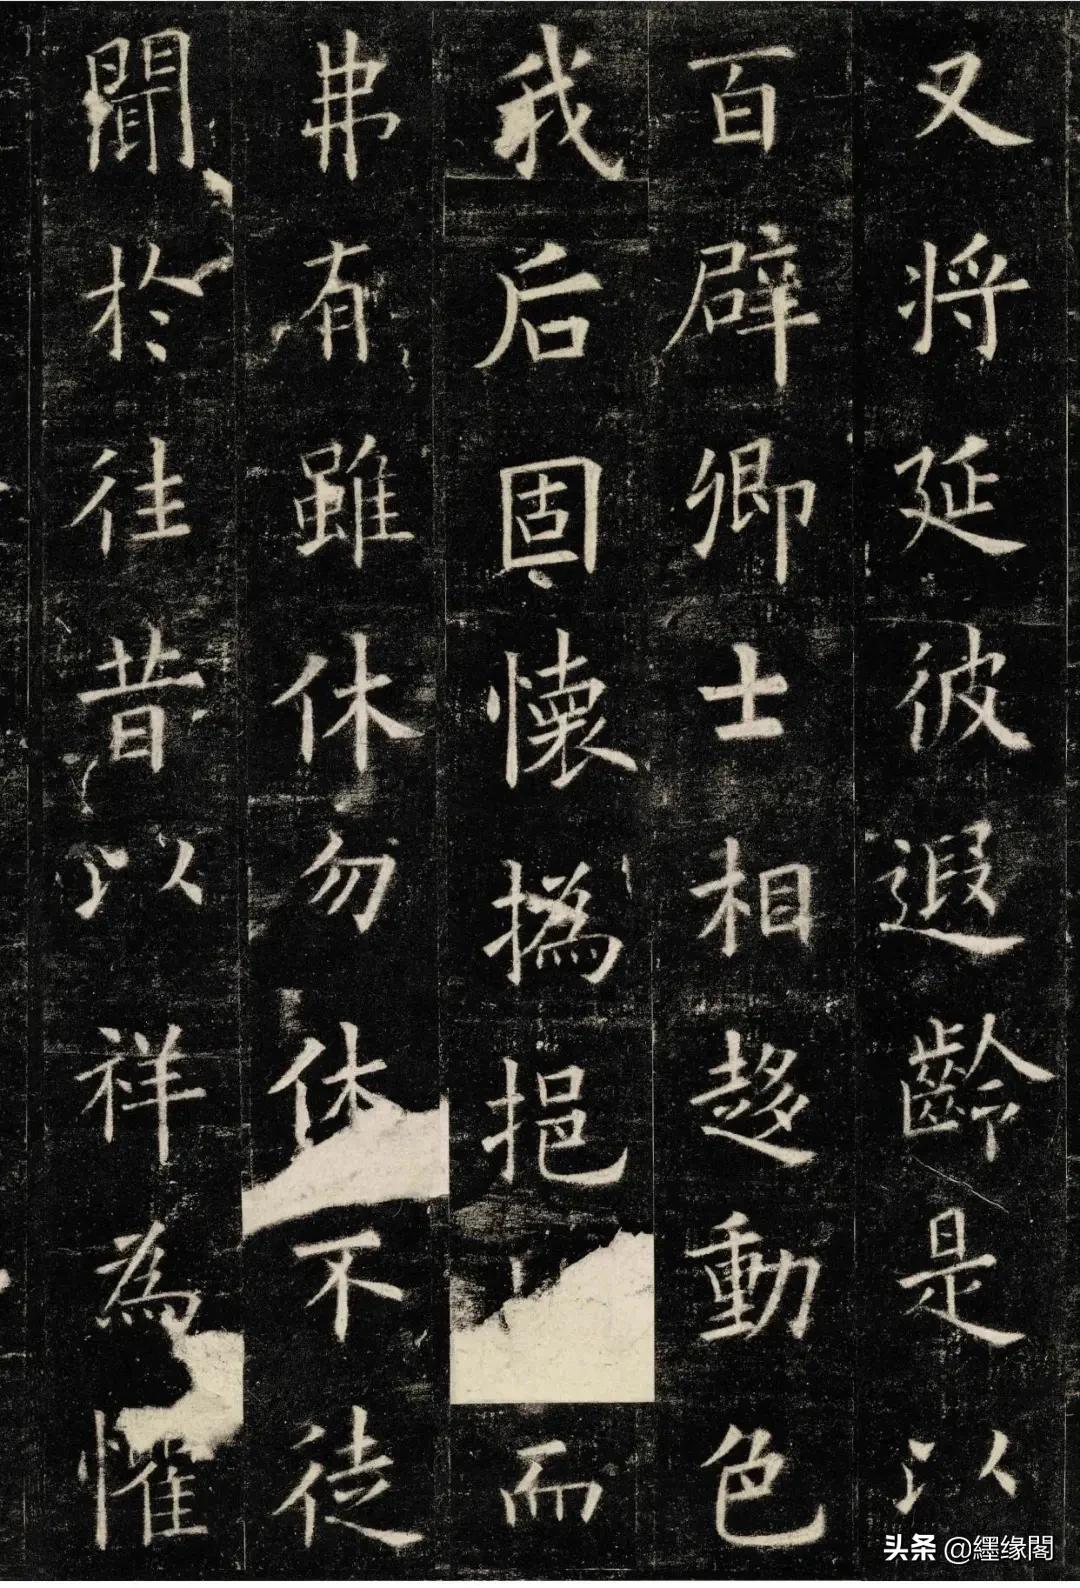 又将延彼遐齡是以
百辟卿士相趍動色
我后固懷撝挹而
弗有雖休勿休不徒
聞於往昔以祥為懼
头条 @纆缘閣